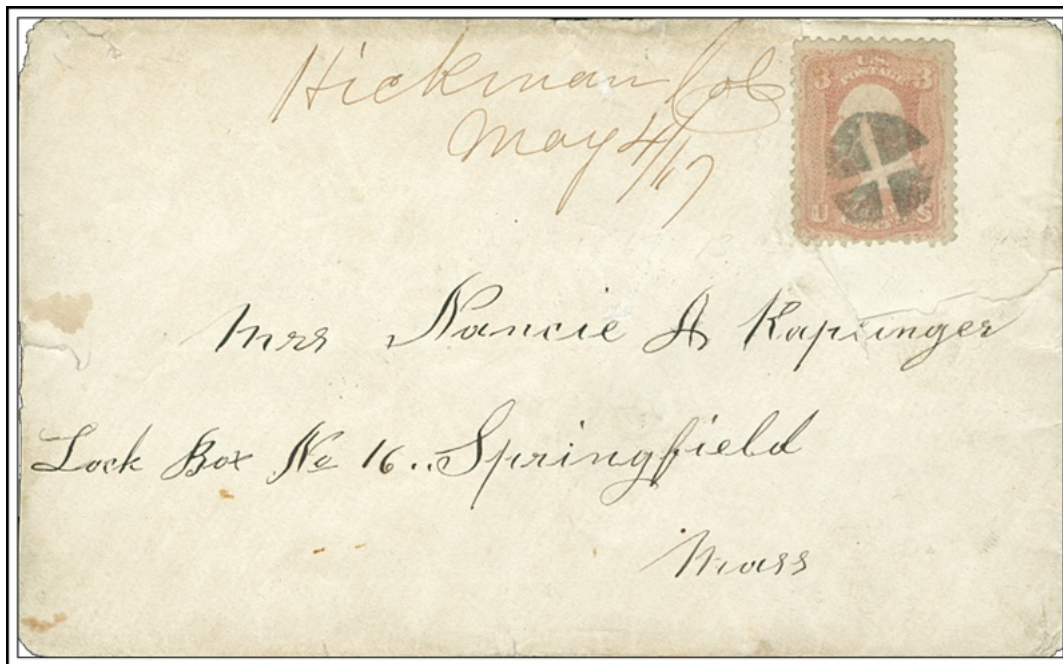 Hickman Cal
May 4/17
3 U.S. POSTAGE 3
U S
Mrs Nancie A Kapsinger
Lock Box No 16.. Springfield
Mass